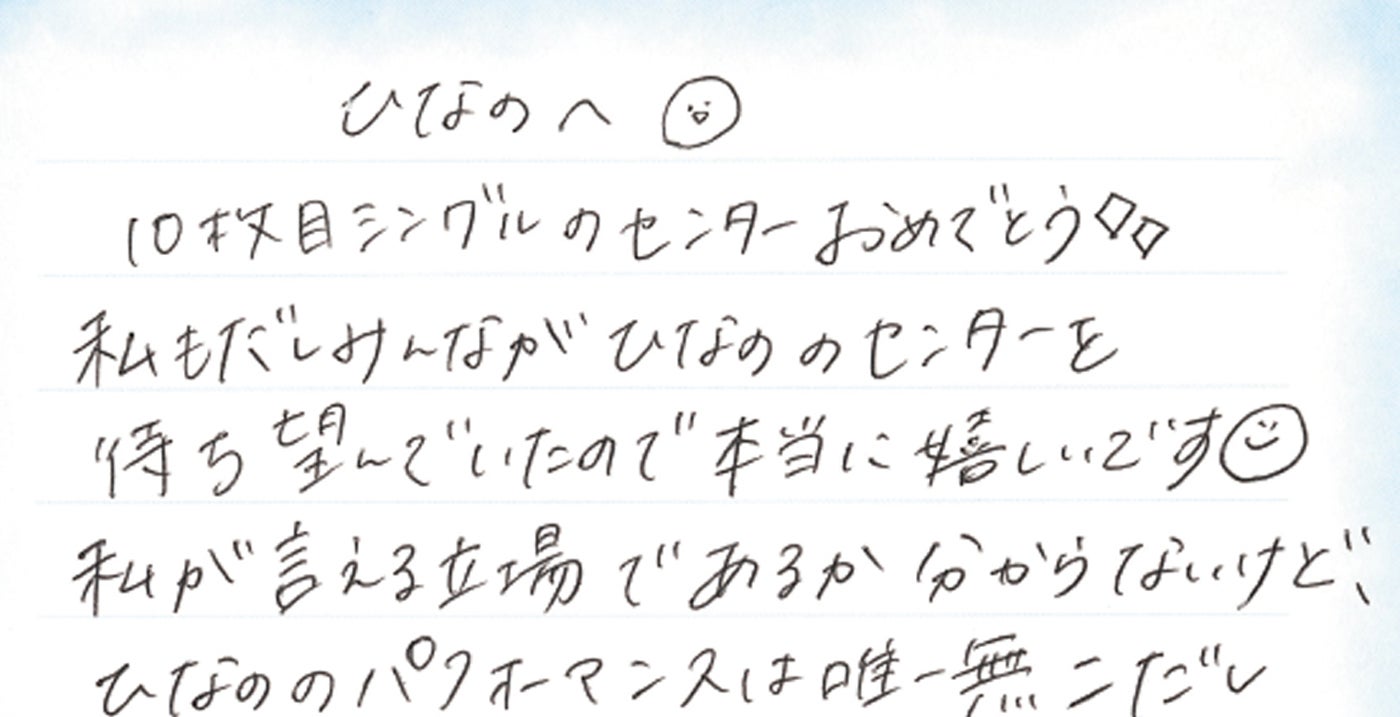 ひなのへ
10枚目シングルのセンターおめでとう
私もだしみんながひなののセンターを
待ち望んでいたので本当に嬉しいです
私が言える立場であるか分からないけど、
ひなののパフォーマンスは唯一無二だし